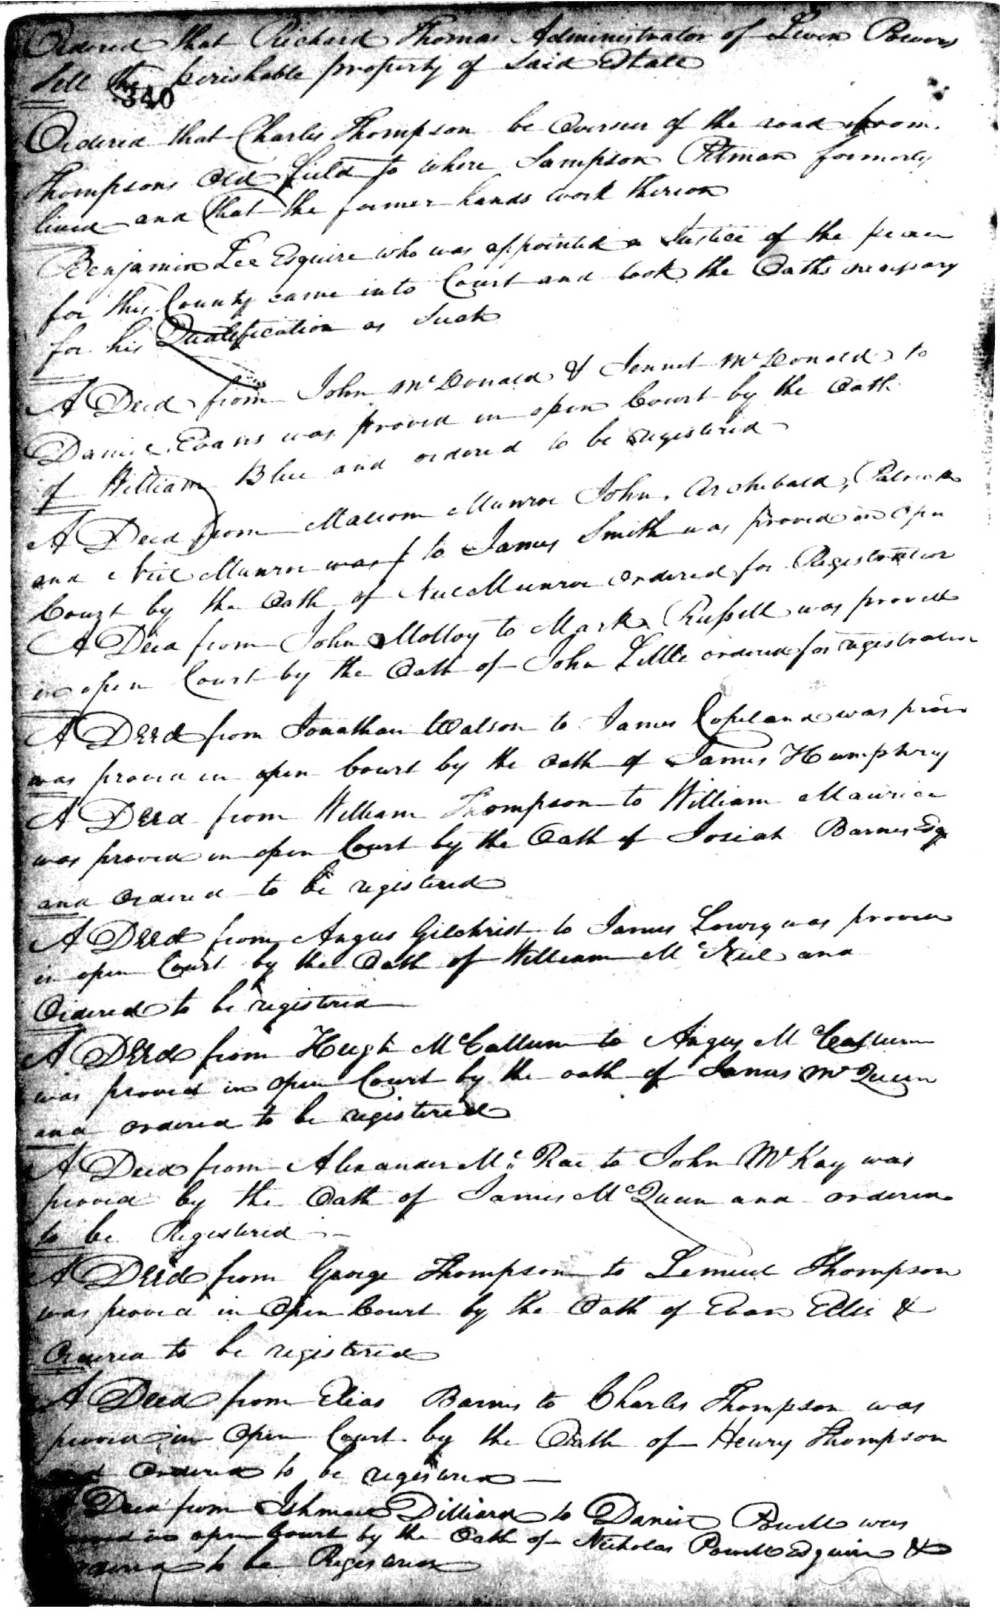 Ordered that Richard Thomas Administrator of Levin Powers
Sell the perishable property of Said Estate
340
Ordered that Charles Thompson be Overseer of the road from
Thompsons Old field to where Sampson Pitman formerly
lived and that the former hands work thereon
Benjamin Lee Esquire who was appointed a Justice of the peace
for this County came into Court and took the Oaths necessary
for his Qualification as Such
A Deed from John McDonald & Jennet McDonald to
Daniel Evans was proved in open Court by the Oath
of William Blue and ordered to be registered
A Deed from Malcom Munroe John, Archibald, Patrick
and Neil Munroe was to James Smith was proved in open
Court by the Oath of Neil Munroe Ordered for Registration
A Deed from John Molloy to Mark Russell was proved
in open Court by the Oath of John Little ordered for registration
A Deed from Jonathan Watson to James Copeland was prov
was proved in open Court by the Oath of James Humphrey
A Deed from William Thompson to William Maurice
was proved in open Court by the Oath of Josiah Barnes Esq
and Ordered to be registered
A Deed from Angus Gilchrist to James Lowry was proved
in open Court by the Oath of William McNeil and
Ordered to be registered
A Deed from Hugh McCallum to Angus McCallum
was proved in Open Court by the oath of James McQueen
and ordered to be registered
A Deed from Alexander McRae to John McKay was
proved by the Oath of James McQueen and ordered
to be Registered
A Deed from George Thompson to Lemuel Thompson
was proved in Open Court by the Oath of Evan Ellis &
Ordered to be registered
A Deed from Elias Barnes to Charles Thompson was
proved in Open Court by the Oath of Henry Thompson
and Ordered to be registered
Deed from Ishmael Dilliard to Daniel Powell was
proved in open Court by the Oath of Nicholas Powell Esquire &
Ordered to be Registered